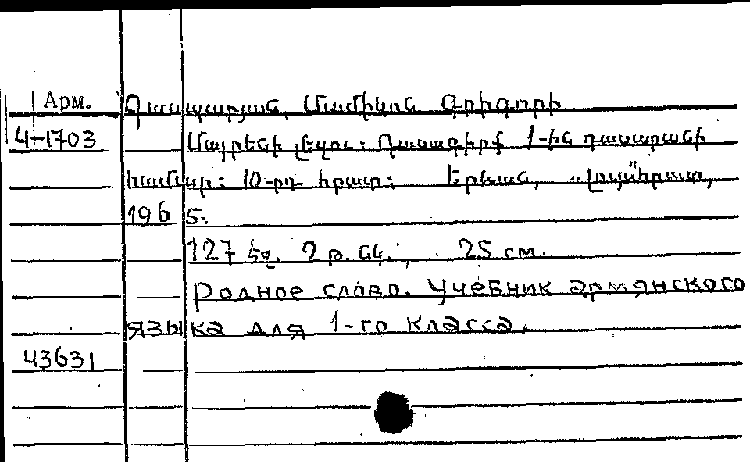 Арм. Գասպարյան, Մամիկոն Գրիգորի
4-1703 Մայրենի լեզու: Դասագիրք 1-ին դասարանի
համար: 10-րդ հրատ: Երևան, „Լույս" հրատ,
1965.
127 էջ. 2 թ. նկ., 25 см.
Родное слово. Учебник армянского
языка для 1-го класса.
43631